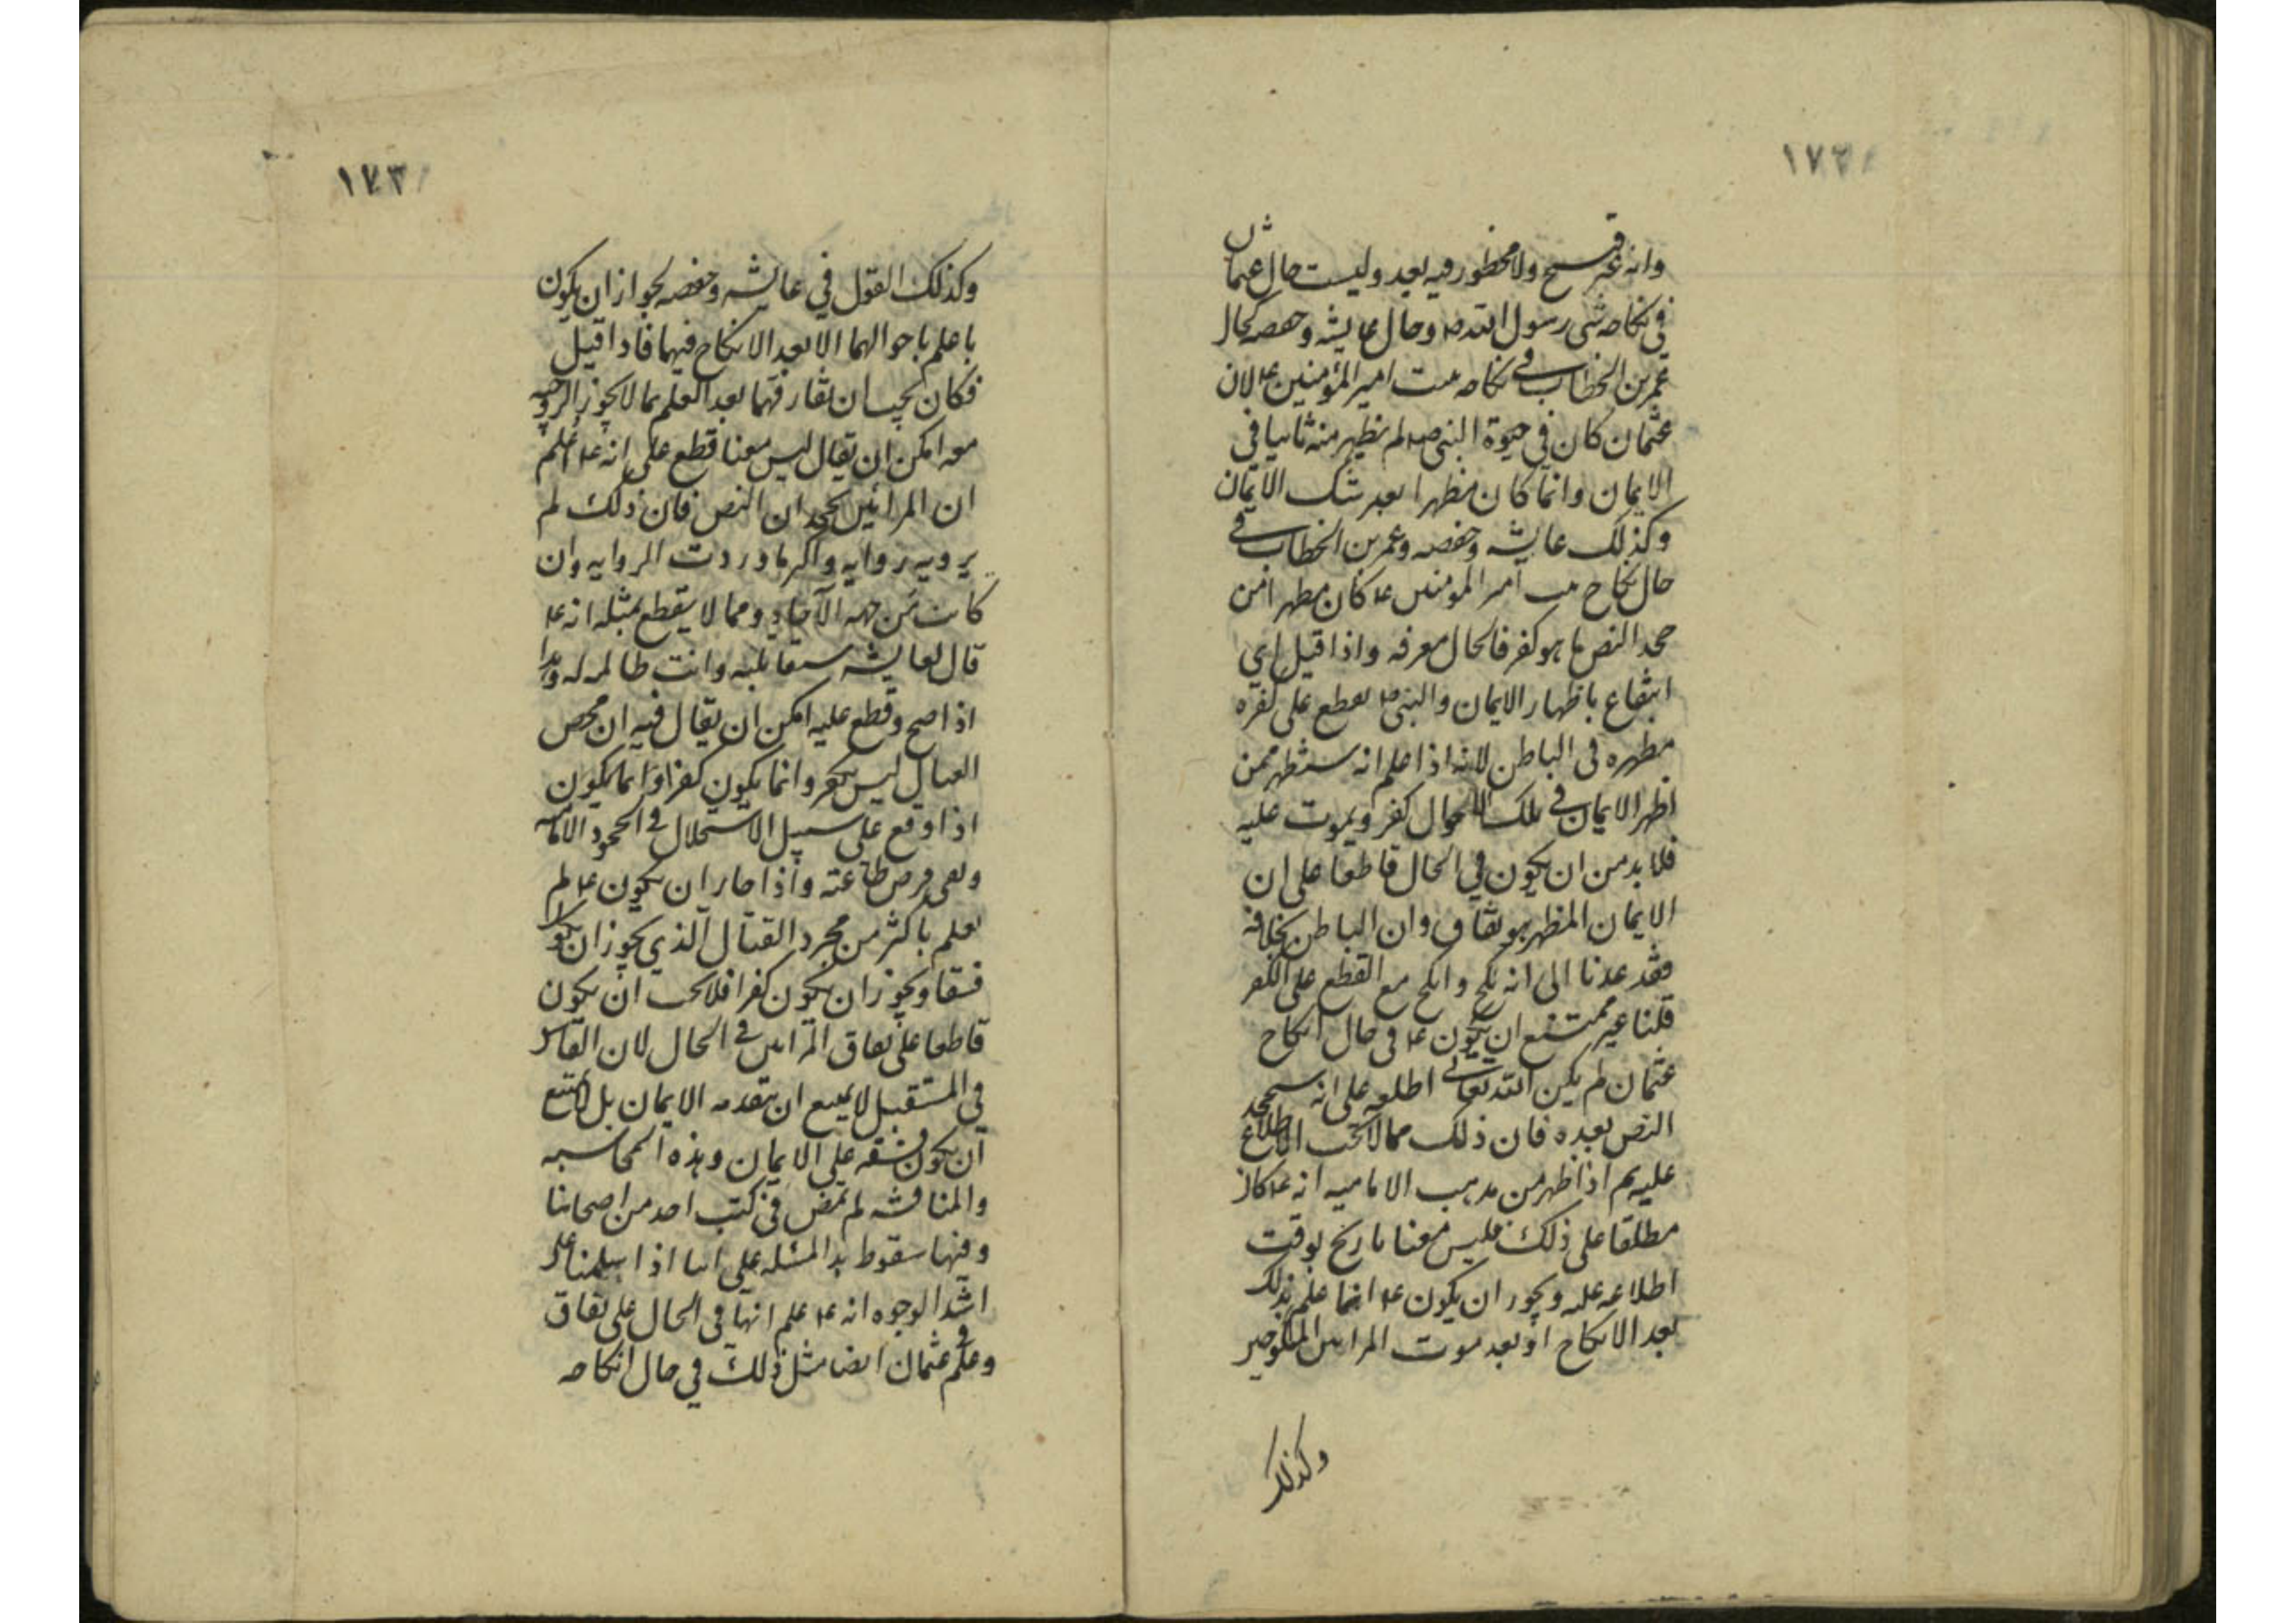 ١٧٢
وانه غير قبيح ولا محظور فيه بعد وليست حال عثمان
في نكاحه بنتي رسول الله ص وحال عايشه وحفصه كحال
عمر بن الخطاب في نكاحه بنت امير المؤمنين ع لان
عثمان كان في حيوة النبي ص لم يظهر منه ما ينافي
الايمان وانما كان مظهرا بغير شك الايمان
وكذلك عايشه وحفصه وعمر بن الخطاب في
حال نكاح بنت امير المومنين ع كان مظهرا من
جحد النص ما هو كفر فالحال مفرقه واذا قيل اي
انتفاع باظهار الايمان والنبي ص يقطع على كفره
مظهره في الباطن لانه اذا علم انه سيظهر ممن
اظهر الايمان في تلك الاحوال كفر ويموت عليه
فلا بد من ان يكون في الحال قاطعا على ان
الايمان المظهر هو نفاق وان الباطن بخلافه
فقد عدنا الى انه نكح وانكح مع القطع على الكفر
قلنا غير ممتنع ان يكون ع في حال انكاح
عثمان لم يكن الله تعالى اطلعه على انه سيجحد
النص بعده فان ذلك مما لا يجب الاطلاع
عليه ثم اذا ظهر من مذهب الاماميه انه ع كان
مطلعا على ذلك فليس معنا تاريخ بوقت
اطلاعه عليه ويجوز ان يكون ع انما علم بذلك
بعد الانكاح او بعد موت المراتين المنكوحتين
وكذلك
١٧٣
وكذلك القول في عايشه وحفصه لجواز ان يكون
ما علم باحوالهما الا بعد الانكاح فيهما فاذا قيل
فكان يجب ان يفارقهما بعد العلم بما لا يجوز الزوجيه
معه امكن ان يقال ليس معنا قطع على انه ع علم
ان المراتين يجحدان النص فان ذلك لم
يرويه روايه واكثر ما وردت الروايه وان
كانت من جهه الآحاد ومما لا يقطع بمثله انه ع
قال لعايشه ستقاتلينه وانت ظالمه له وهذا
اذا صح وقطع عليه امكن ان يقال فيه ان محض
القتال ليس بكفر وانما يكون كفرا وانما يكون
اذا وقع على سبيل الاستحلال في الجحود الامامه
ونفي فرض طاعته واذا جاز ان يكون ع لم
يعلم باكثر من مجرد القتال الذي يجوز ان يكون
فسقا ويجوز ان يكون كفرا فلا يجب ان يكون
قاطعا على نفاق المراتين في الحال لان القاس
في المستقبل لا يمنع ان يتقدمه الايمان بل لا يمتنع
ان يكون فسقه على الايمان وهذه المحاسبه
والمناقشه لم تمض في كتب احد من اصحابنا
ومنها سقوط هذه المسئله على انا اذا سلمنا على
اشد الوجوه انه ع علم انهما في الحال على نفاق
وعلم في عثمان ايضا مثل ذلك في حال انكاحه